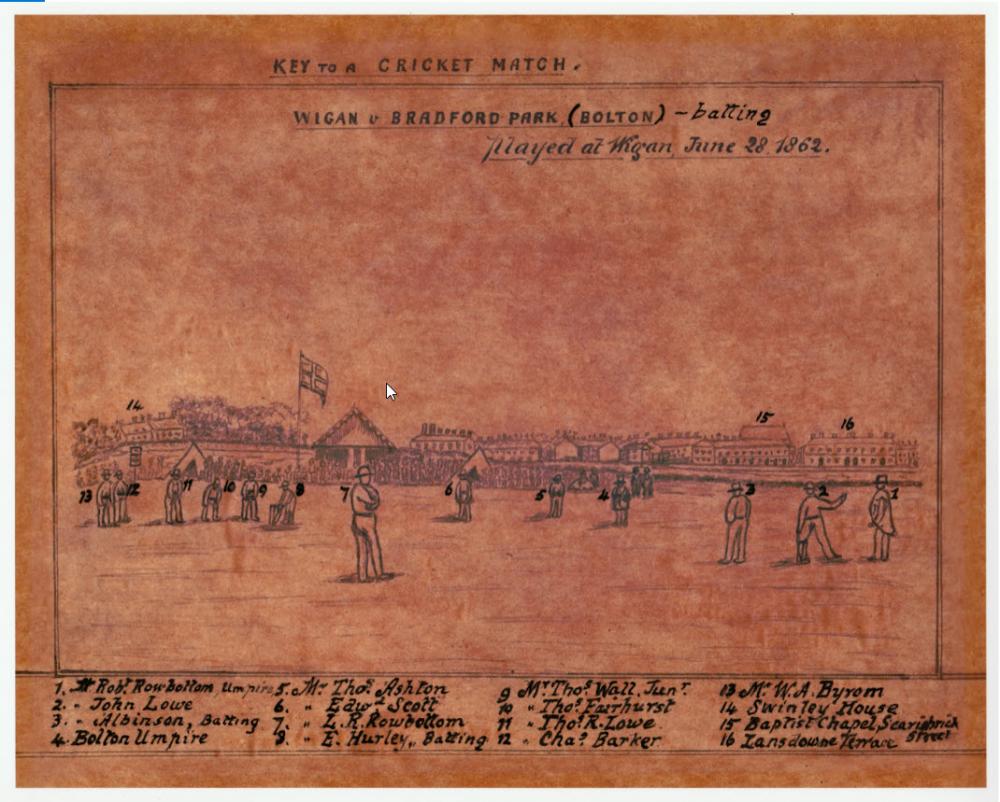 KEY TO A CRICKET MATCH.
WIGAN v BRADFORD PARK (BOLTON) - batting
Played at Wigan, June 28. 1862.
14
15
16
13
12
11
10
9
8
7
6
5
4
3
2
1
1. Mr Robt. Rowbottom, Umpire
2. " John Lowe
3. " Albinson, Batting
4. Bolton Umpire
5. Mr Thos. Ashton
6. " Edwd. Scott
7. " L.R. Rowbottom
8. " E. Hurley, Batting
9 Mr. Thos. Wall, Junr.
10 " Thos. Fairhurst
11 " Thos. R. Lowe
12 " Chas. Barker
13 Mr. W.A. Byrom
14 Swinley House
15 Baptist Chapel Scarisbrick Street
16 Lansdowne Terrace